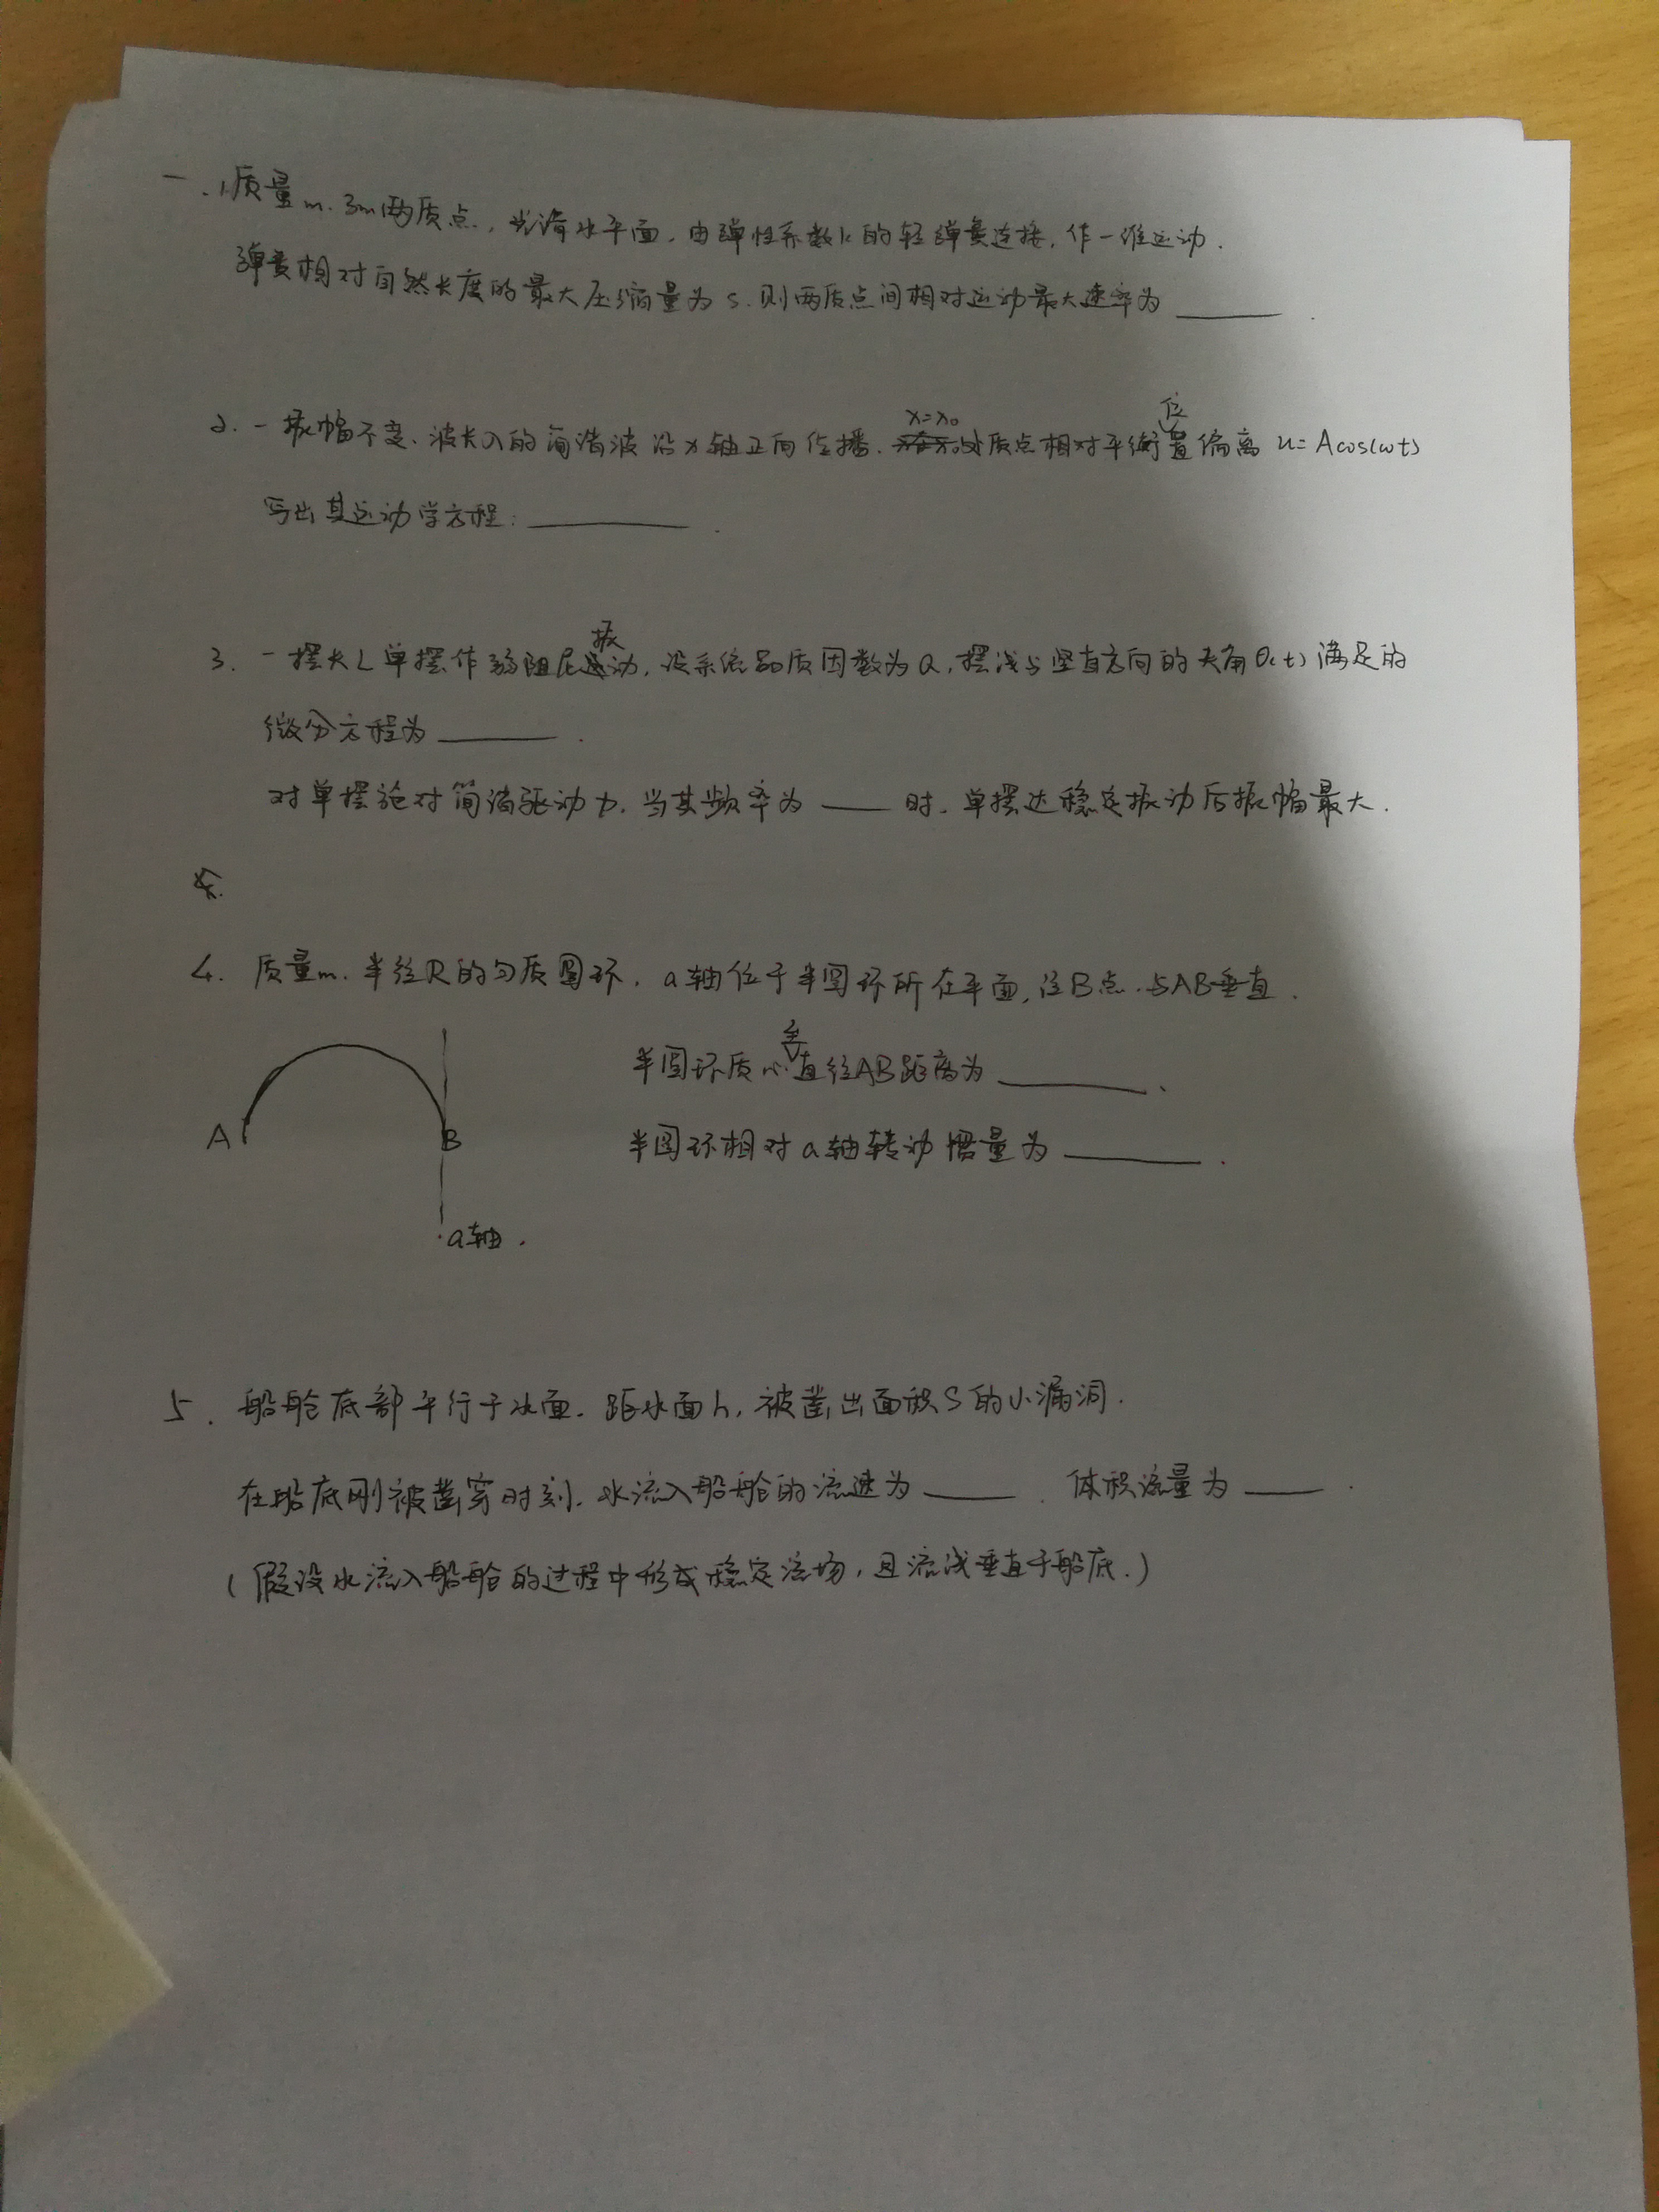 一.1.质量m.3m两质点,光滑水平面,由弹性系数k的轻弹簧连接,作一维运动.
弹簧相对自然长度的最大压缩量为s.则两质点间相对运动最大速率为______.
2.一振幅不变、波长λ的简谐波沿x轴正向传播.x=x₀处质点相对平衡位置偏离u=Acos(ωt)
写出其运动学方程:______.
3.一摆长L单摆作弱阻尼振动,设系统品质因数为Q,摆线与竖直方向的夹角θ(t)满足的
微分方程为______.
对单摆施对简谐驱动力,当其频率为____时,单摆达稳定振动后振幅最大.
4.质量m.半径R的匀质圆环,a轴位于半圆环所在平面,过B点.与AB垂直.
半圆环质心至直径AB距离为______、
A B
半圆环相对a轴转动惯量为______.
a轴.
5.船舱底部平行于水面.距水面h,被凿出面积S的小漏洞.
在船底刚被凿穿时刻.水流入船舱的流速为____.体积流量为____.
(假设水流入船舱的过程中形成稳定流场,且流线垂直于船底.)